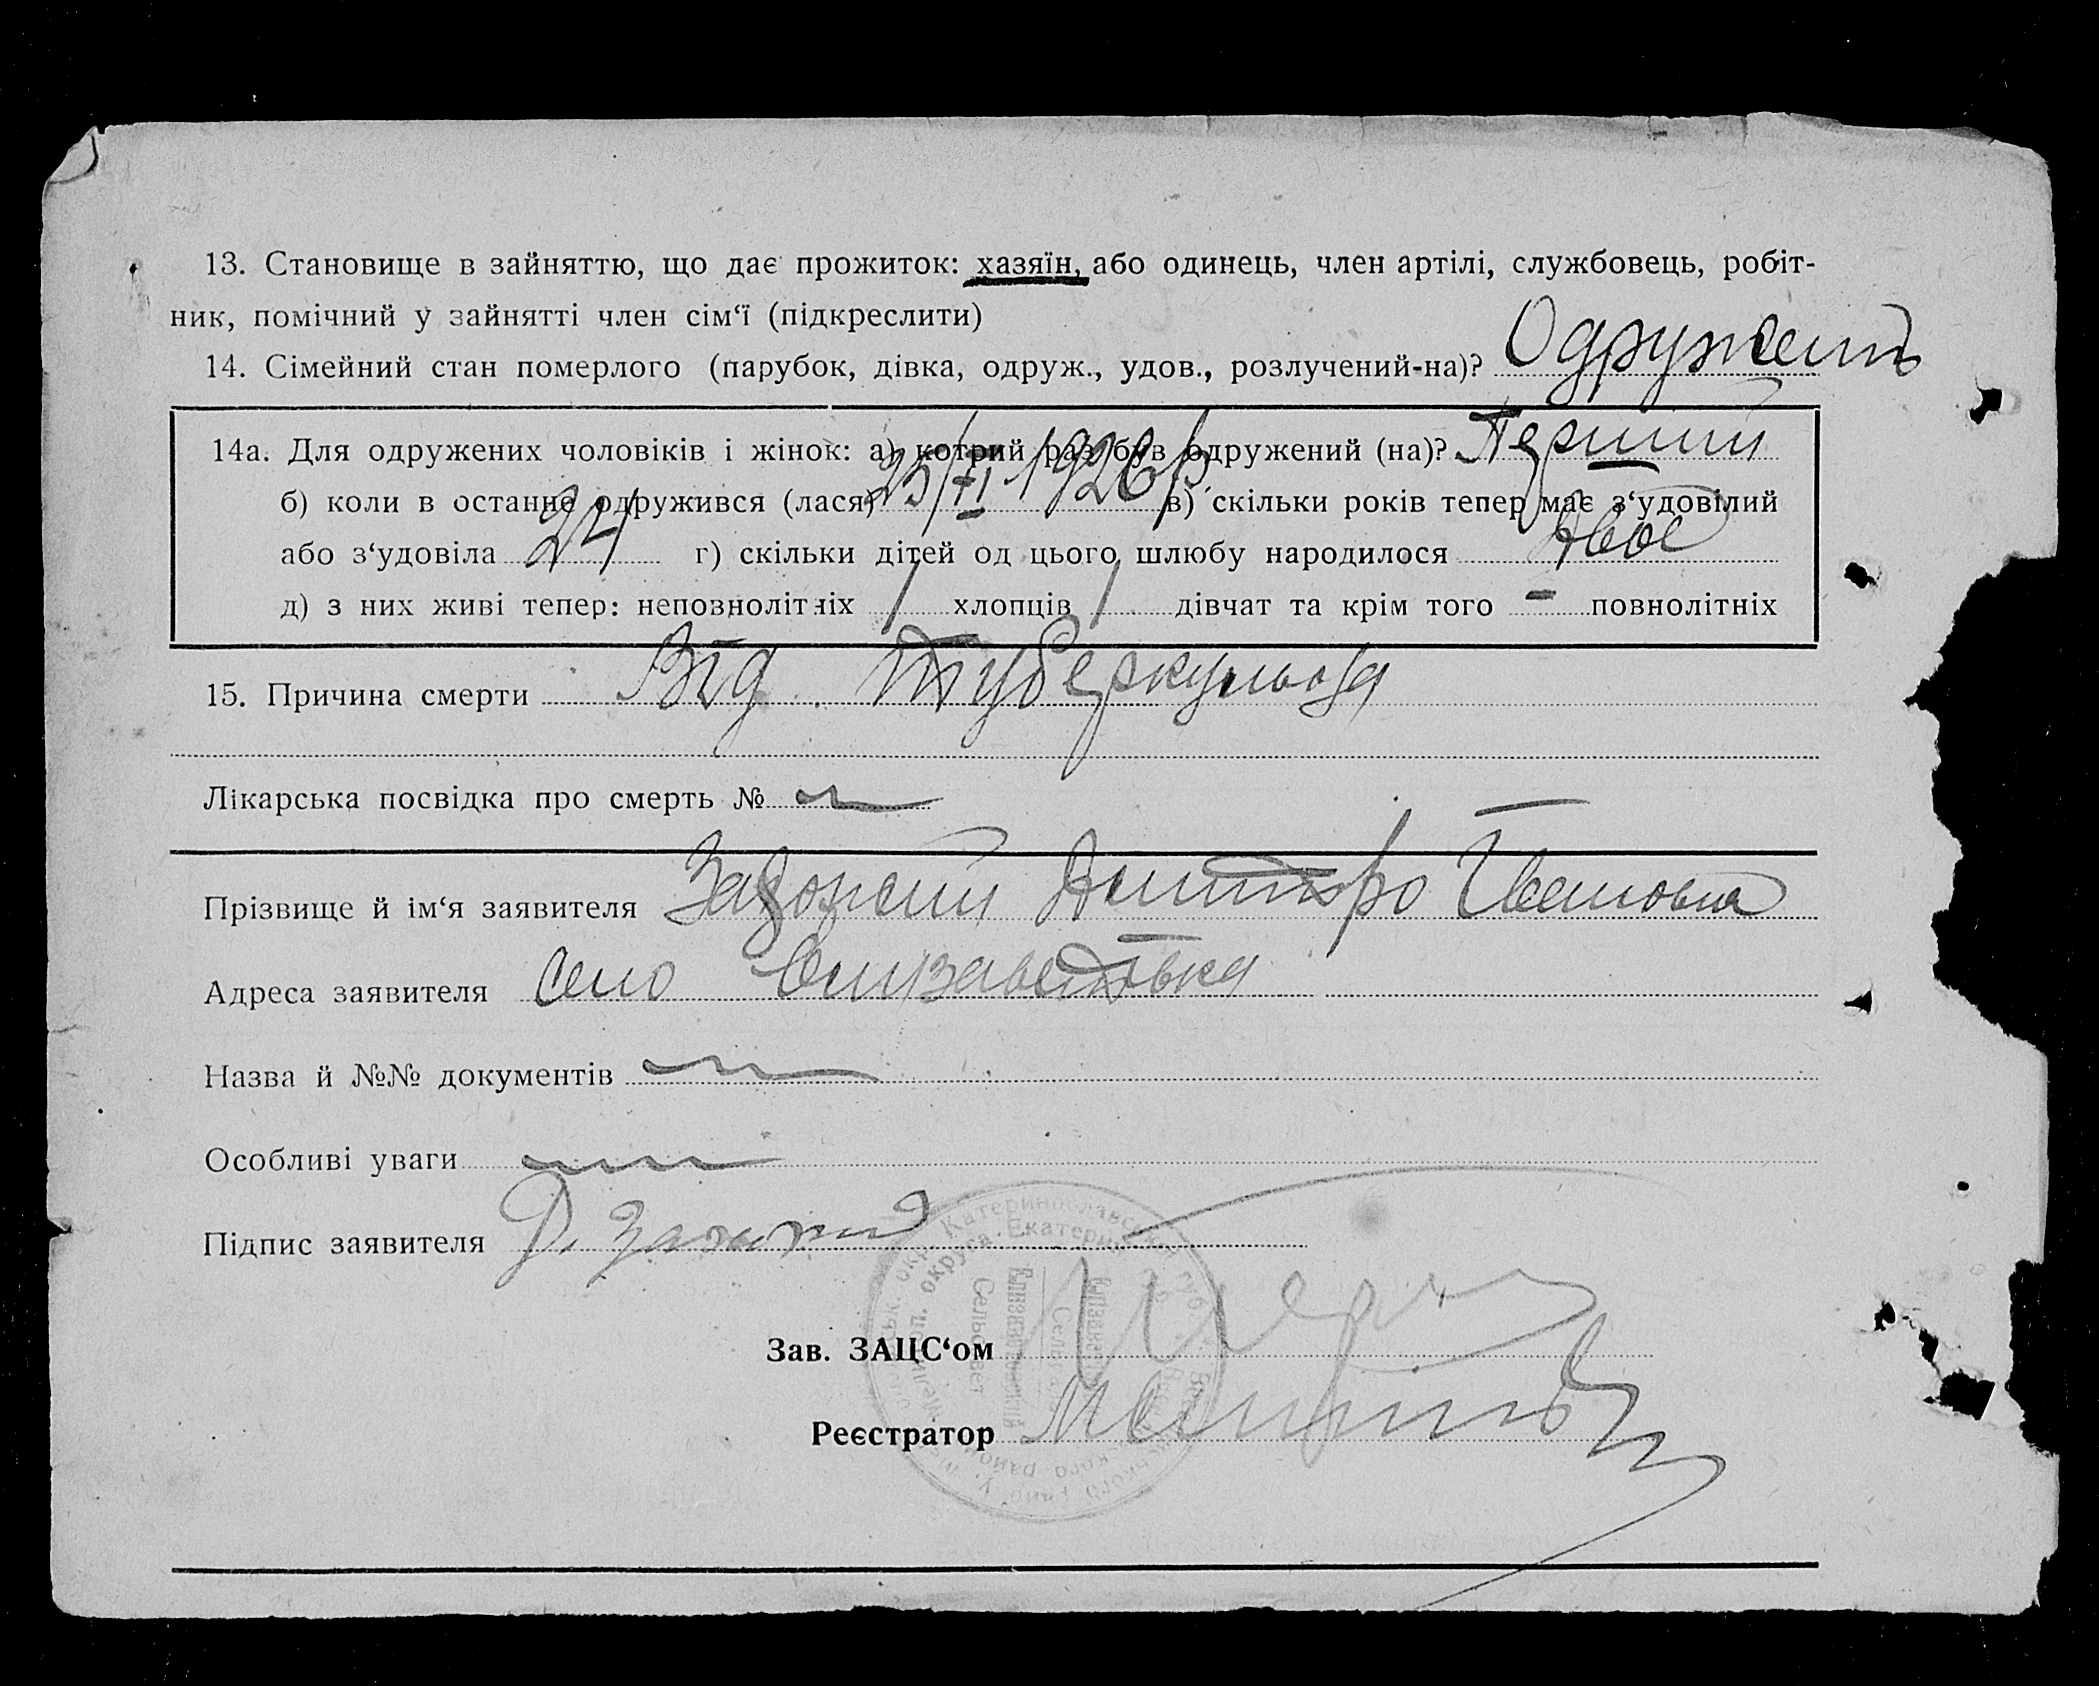 13. Становище в зайняттю, що дає прожиток: хазяїн, або одинець, член артілі, службовець, робіт-
ник, помічний у зайнятті член сім‘ї (підкреслити)
14. Сімейний стан померлого (парубок, дівка, одруж., удов., розлучений-на)? Одружений
14а. Для одружених чоловіків і жінок: а) котрий раз був одружений (на)? Перший
б) коли в останнє одружився (лася) 25/ІІ 1926 р. в) скільки років тепер має з‘удовілий
або з‘удовіла 24 г) скільки дітей од цього шлюбу народилося двое
д) з них живі тепер: неповнолітніх 1 хлопців 1 дівчат та крім того - повнолітніх
15. Причина смерти Від туберкульоза
Лікарська посвідка про смерть №
Прізвище й ім‘я заявителя Дмитро
Адреса заявителя село Єлизаветовка
Назва й №№ документів
Особливі уваги
Підпис заявителя Д.
Катеринославської губ.
округа Екатерин
Сельсовет
Зав. ЗАЦС‘ом
Реєстратор